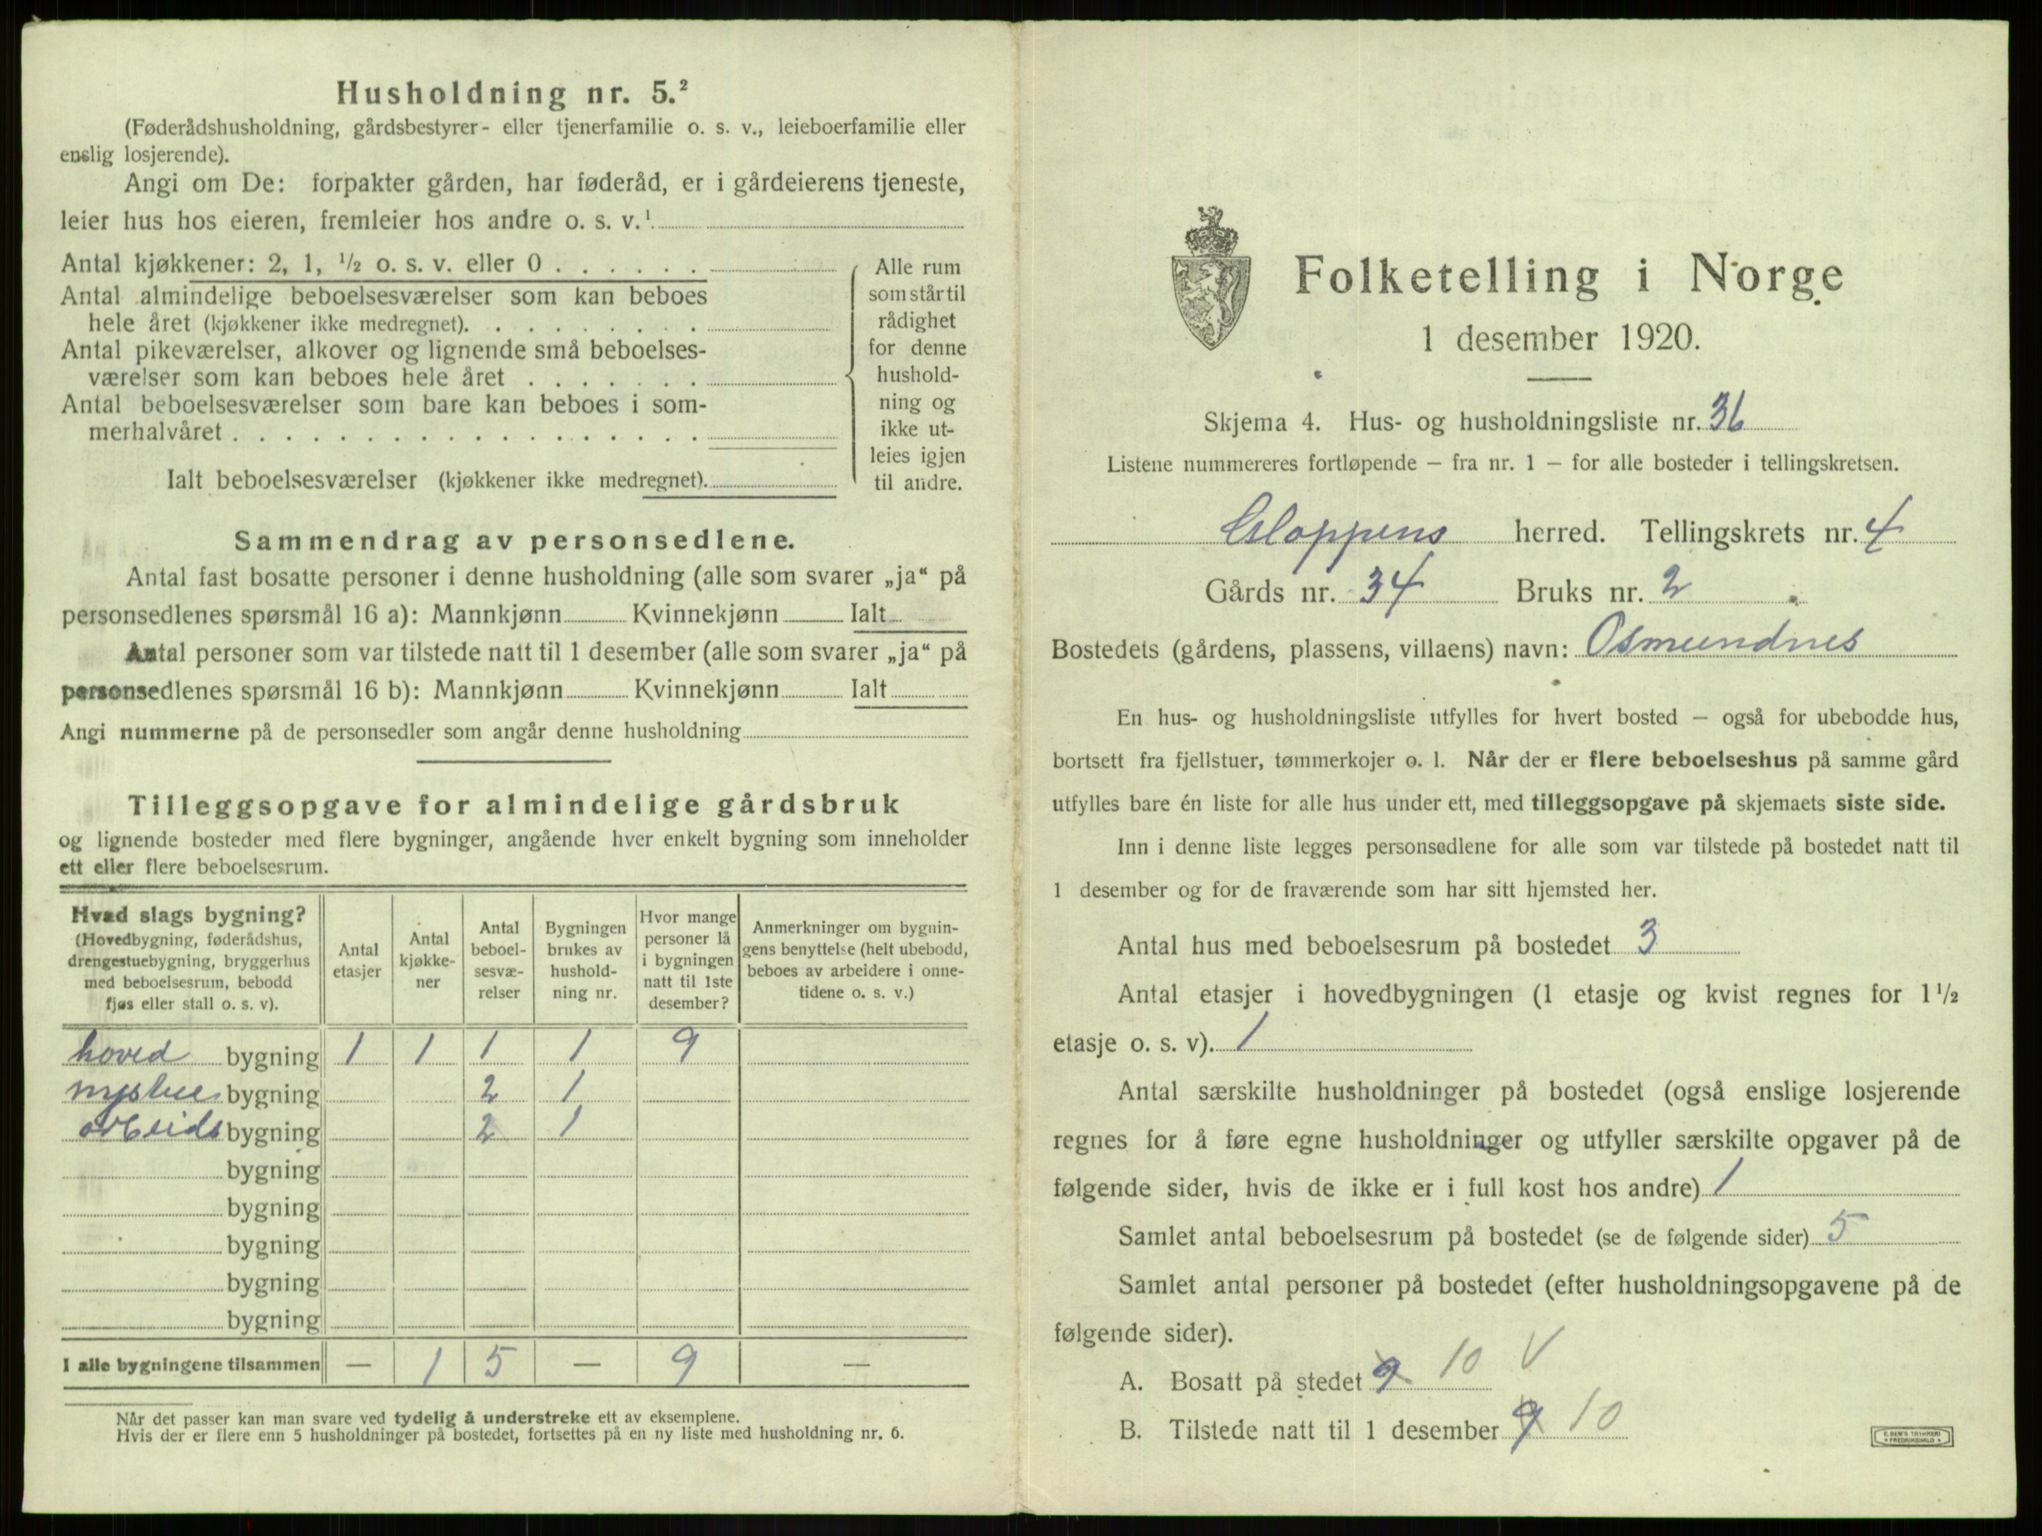 Husholdning nr. 5.²
(Føderådshusholdning, gårdsbestyrer- eller tjenerfamilie o. s. v., leieboerfamilie eller
enslig losjerende).
Angi om De: forpakter gården, har føderåd, er i gårdeierens tjeneste,
leier hus hos eieren, fremleier hos andre o. s. v.¹
Antal kjøkkener: 2, 1, ½ o. s. v. eller 0 . . . . . .
Antal almindelige beboelsesværelser som kan beboes
hele året (kjøkkener ikke medregnet). . . . . . . . .
Antal pikeværelser, alkover og lignende små beboelses-
værelser som kan beboes hele året . . . . . . .
Antal beboelsesværelser som bare kan beboes i som-
merhalvåret . . . . . . . . . . . . . . . . . .
Ialt beboelsesværelser (kjøkkener ikke medregnet).
Alle rum
som står til
rådighet
for denne
hushold-
ning og
ikke ut-
leies igjen
til andre.
Sammendrag av personsedlene.
Antal fast bosatte personer i denne husholdning (alle som svarer „ja“ på
personsedlenes spørsmål 16 a): Mannkjønn Kvinnekjønn Ialt
Antal personer som var tilstede natt til 1 desember (alle som svarer „ja“ på
personsedlenes spørsmål 16 b): Mannkjønn Kvinnekjønn Ialt
Angi nummerne på de personsedler som angår denne husholdning
Tilleggsopgave for almindelige gårdsbruk
og lignende bosteder med flere bygninger, angående hver enkelt bygning som inneholder
ett eller flere beboelsesrum.
Hvad slags bygning?
(Hovedbygning, føderådshus,
drengestuebygning, bryggerhus
med beboelsesrum, bebodd
fjøs eller stall o. s. v).
Antal
etasjer
Antal
kjøkke-
ner
Antal
beboel-
sesvæ-
relser
Bygningen
brukes av
hushold-
ning nr.
Hvor mange
personer lå
i bygningen
natt til 1ste
desember?
Anmerkninger om bygnin-
gens benyttelse (helt ubebodd,
beboes av arbeidere i onne-
tidene o. s. v.)
hoved bygning 1 1 1 1 9
nystue bygning 2 1
arbeids bygning 2 1
bygning
bygning
bygning
bygning
bygning
I alle bygningene tilsammen — 1 5 — 9 —
Når det passer kan man svare ved tydelig å understreke ett av eksemplene.
Hvis der er flere enn 5 husholdninger på bostedet, fortsettes på en ny liste med husholdning nr. 6.
Folketelling i Norge
1 desember 1920.
Skjema 4. Hus- og husholdningsliste nr. 36
Listene nummereres fortløpende – fra nr. 1 – for alle bosteder i tellingskretsen.
Gloppens herred. Tellingskrets nr. 4
Gårds nr. 34 Bruks nr. 2
Bostedets (gårdens, plassens, villaens) navn: Osmundnes
En hus- og husholdningsliste utfylles for hvert bosted – også for ubebodde hus,
bortsett fra fjellstuer, tømmerkojer o. l. Når der er flere beboelseshus på samme gård
utfylles bare én liste for alle hus under ett, med tilleggsopgave på skjemaets siste side.
Inn i denne liste legges personsedlene for alle som var tilstede på bostedet natt til
1 desember og for de fraværende som har sitt hjemsted her.
Antal hus med beboelsesrum på bostedet 3
Antal etasjer i hovedbygningen (1 etasje og kvist regnes for 1½
etasje o. s. v). 1
Antal særskilte husholdninger på bostedet (også enslige losjerende
regnes for å føre egne husholdninger og utfyller særskilte opgaver på de
følgende sider, hvis de ikke er i full kost hos andre) 1
Samlet antal beboelsesrum på bostedet (se de følgende sider) 5
Samlet antal personer på bostedet (efter husholdningsopgavene på de
følgende sider).
A. Bosatt på stedet 9 10 V
B. Tilstede natt til 1 desember 9 10